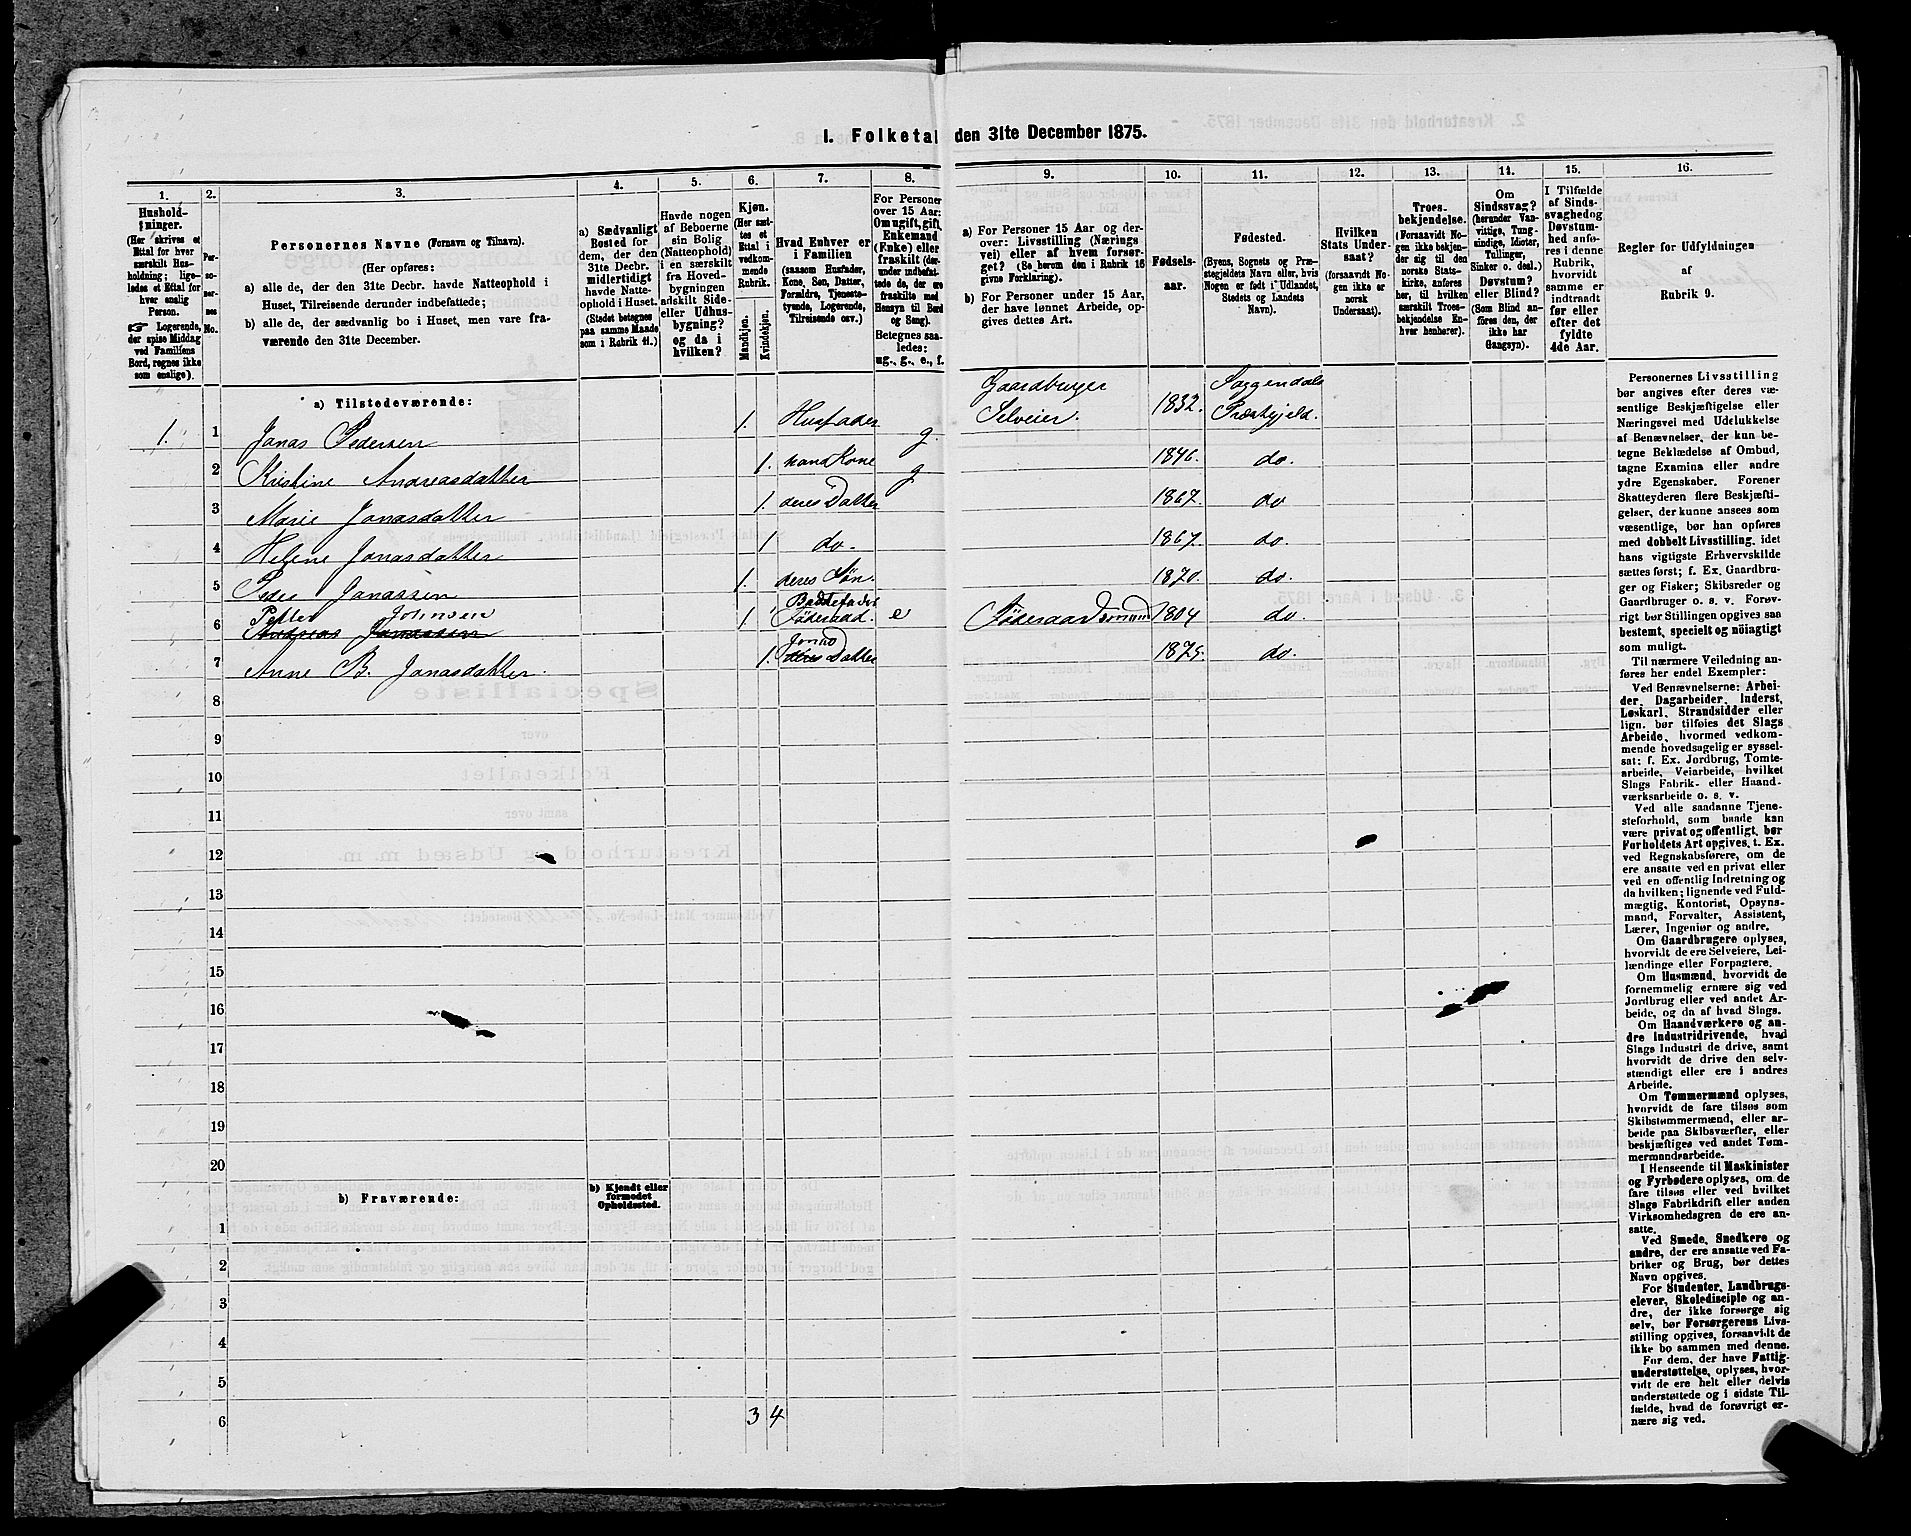 1. Folketal den 31te December 1875.
1. 2. 3. 4. 5. 6. 7. 8. 9. 10. 11. 12. 13. 14. 15. 16.
Hushold-
ninger.
(Her skrives et
Ettal for hver
særskilt Hus-
holdning; lige-
ledes et Ettal for
hver enslig
Person.
☞ Logerende,
der spise Middag
ved Familiens
Bord, regnes ikke
som enslige).
Per-
so-
ner-
nes
No.
Personernes Navne (Fornavn og Tilnavn).
(Her opføres:
a) alle de, der den 31te Decbr. havde Natteophold i
Huset, Tilreisende derunder indbefattede;
b) alle de, der sædvanlig bo i Huset, men vare fra-
værende den 31te December.
a) Sædvanligt
Bosted for
dem, der den
31te Decbr.
midlertidigt
havde Natte-
ophold i Huset.
(Stedet betegnes
paa samme Maade
som i Rubrik 11.)
Havde nogen
af Beboerne
sin Bolig
(Natteophold)
i en særskilt
fra Hoved-
bygningen
adskilt Side-
eller Udhus-
bygning?
og da i
hvilken?
Kjøn.
(Her sæt-
tes et
Ettal i
vedkom-
mende
Rubrik.
Mandkjøn.
Kvindekjøn.
Hvad Enhver er
i Familien
(saasom Husfader,
Kone, Søn, Datter,
Forældre, Tjeneste-
tyende, Logerende,
Tilreisende osv.)
For Personer
over 15 Aar:
Om ugift, gift,
Enkemand
(Enke) eller
fraskilt (der-
under indbefat-
tede de, der ere
fraskilte med
Hensyn til Bord
og Seng).
Betegnes saa-
ledes:
ug., g., e., f.
a) For Personer 15 Aar og der-
over: Livsstilling (Nærings
vei) eller af hvem forsør-
get? (Se herom den i Rubrik 16
givne Forklaring).
b) For Personer under 15 Aar,
der have lønnet Arbeide, op-
gives dettes Art.
Fødsels-
aar.
Fødested.
(Byens, Sognets og Præ-
stegjeldets Navn eller, hvis
Nogen er født i Udlandet,
Stedets og Landets
Navn).
Hvilken
Stats Under-
saat?
(forsaavidt No-
gen ikke er
norsk
Undersaat).
Troes-
bekjendelse.
(Forsaavidt No-
gen ikke bekjen-
der sig til den
norske Stats-
kirke, anføres
her, til hvilken
særskilt Troes-
bekjendelse En-
hver henhører).
Om
Sindssvag?
(herunder Van-
vittige, Tung-
sindige, Idioter,
Tullinger,
Sinker o. desl.)
Døvstum?
eller Blind?
(Som Blind an-
føres den, der
ikke har
Gangsyn).
I Tilfælde
af Sinds-
svaghed og
Døvstum-
hed anfø-
res i denne
Rubrik,
hvorvidt
samme er
indtraadt
før eller
efter det
fyldte
4de Aar.
Regler for Udfyldningen
af
Rubrik 9.
a) Tilstedeværende:
1. 1 Jonas Pedersen 1. Husfader g. Gaardbruger Selveier. 1832. Saggendals Præstgjeld.
2 Kristine Andreasdatter 1. hans Kone g 1846. do.
3 Marie Jonasdatter 1. deres Datter 1867. do
4 Helene Jonasdatter 1 do. 1867. do.
5 Peder Jonassen 1. deres Søn. 1870. do.
Petter Johnsen
6 Andreas Jonassen 1. Føderaad. e Føderaadsmand 1804 do.
7 Anne B. Jonasdatter. 1. deres Datter 1875. do.
8
9
10
11
12
13
14
15
16
17
18
19
20
b) Fraværende:
b) Kjendt eller
formodet
Opholdssted.
1
2
3
4
5
6 3 4
Personernes Livsstilling
bør angives efter deres væ-
sentlige Beskjæftigelse eller
Næringsvei med Udelukkelse
af Benævnelser, der kun be-
tegne Beklædelse af Ombud,
tagne Examina eller andre
ydre Egenskaber. Forener
Skatteyderen flere Beskjæfti-
gelser, der kunne ansees som
væsentlige, bør han opføres
med dobbelt Livsstilling, idet
hans vigtigste Erhvervskilde
sættes først; f. Ex. Gaardbru-
ger og Fisker; Skibsreder og
Gaardbruger o. s. v. Forøv-
rigt bør Stillingen opgives saa
bestemt, specielt og nøiagtigt
som muligt.
Til nærmere Veiledning an-
føres her endel Exempler:
Ved Benævnelserne: Arbei-
der, Dagarbeider, Inderst,
Løskarl, Strandsidder eller
lign. bør tilføies det Slags
Arbeide, hvormed vedkom-
mende hovedsagelig er syssel-
sat; f. Ex. Jordbrug, Tomte-
arbeide, Veiarbeide, hvilket
Slags Fabrik- eller Haand-
værksarbeide o. s. v.
Ved alle saadanne Tjene-
steforhold, som baade kan
være privat og offentligt, bør
Forholdets Art opgives, t. Ex.
ved Regnskabsførere, om de
ere ansatte ved en privat eller
ved en offentlig Indretning og
da hvilken; lignende ved Fuld-
mægtig, Kontorist, Opsyns-
mand, Forvalter, Assistent,
Lærer, Ingeniør og andre.
Om Gaardbrugere oplyses,
hvorvidt de ere Selveiere, Lei-
lændinge eller Forpagtere.
Om Husmænd, hvorvidt de
fornemmelig ernære sig ved
Jordbrug eller ved andet Ar-
beide, og da af hvad Slags.
Om Haandværkere og an-
dre Industridrivende, hvad
Slags Industri de drive, samt
hvorvidt de drive den selv-
stændigt eller ere i andres
Arbeide.
Om Tømmermænd oplyses,
hvorvidt de fare tilsøs som
Skibstømmermænd, eller ar-
beide paa Skibsværfter, eller
beskjæftiges ved andet Tøm-
mermandsarbeide.
I Henseende til Maskinister
og Fyrbødere oplyses, om de
fare tilsøs eller ved hvilket
Slags Fabrikdrift eller anden
Virksomhedsgren de ere an-
satte.
Ved Smede, Snedkere og
andre, der ere ansatte ved Fa-
briker og Brug, bør dettes
Navn opgives.
For Studenter, Landbrugs-
elever, Skoledisciple og an-
dre, der ikke forsørge sig
selv, bør Forsørgerens Livs-
stilling opgives, forsaavidt de
ikke bo sammen med denne.
For dem, der have Fattig-
understøttelse, oplyses, hvor-
vidt de ere helt eller delvis
understøttede og i sidste Til-
fælde, hvad de forøvrigt er-
nære sig ved.